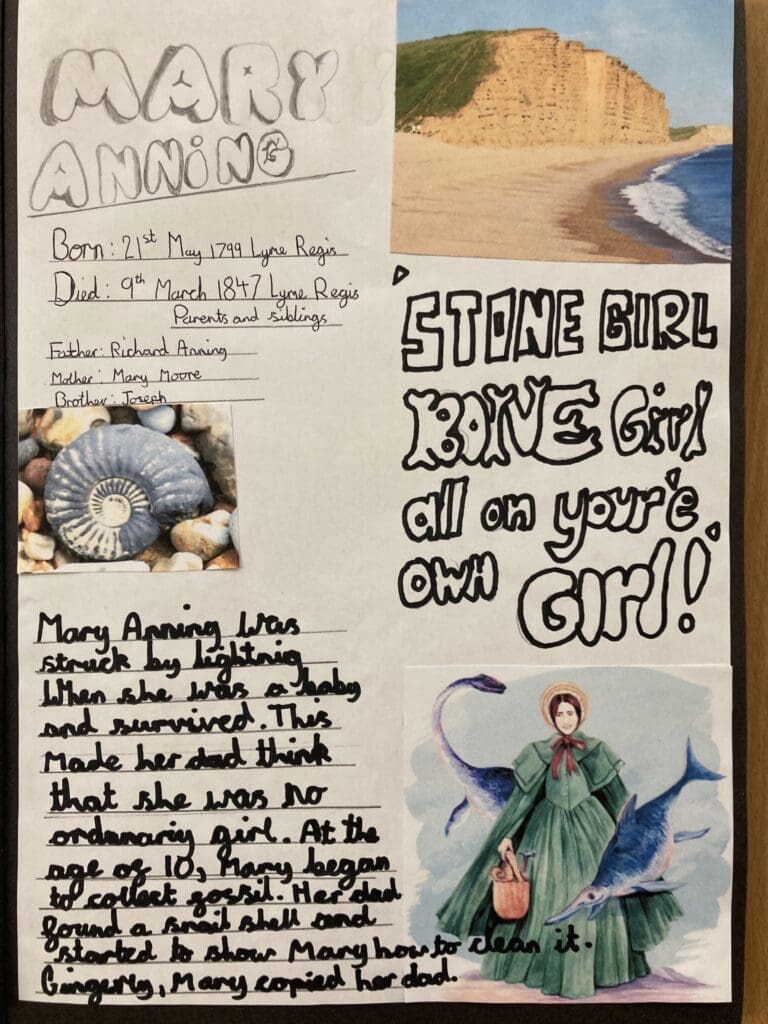 MARY
ANNiNG
Born: 21st May 1799 Lyme Regis
Died: 9th March 1847 Lyme Regis
Parents and siblings
Father: Richard Anning
Mother: Mary Moore
Brother: Joseph
'STONE GIRL
BONE Girl
all on your'e
OWN Girl!'
Mary Anning was
struck by lightnig
When she was a baby
and survived. This
Made her dad think
that she was no
ordenariy girl. At the
age of 10, Mary began
to collect fossil. Her dad
found a snail shell and
started to show Mary how to clean it.
Gingerly, Mary copied her dad.